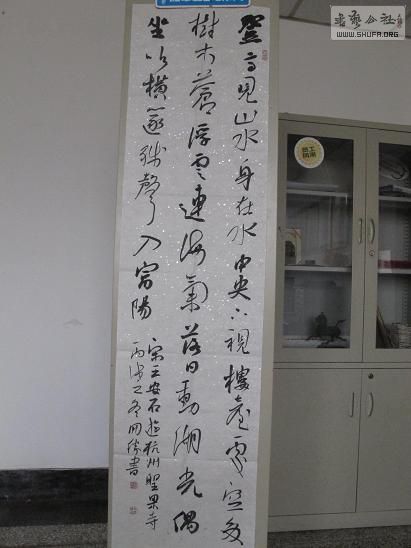 登高見山水身在水中央下視樓臺處空多
樹木蒼浮雲連海氣落日動湖光偶
坐吹橫篴殘聲入富陽
宋王安石遊杭州聖果寺
丙戌之冬書
書藝公社
WWW.SHUFA.ORG